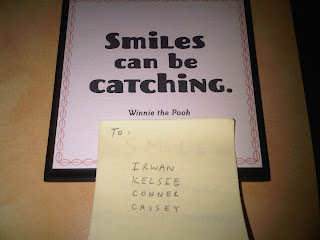 Smiles
can be
catching.
Winnie the Pooh
To:
SMILE
IRWAN
KELSIE
CONNER
CASSEY